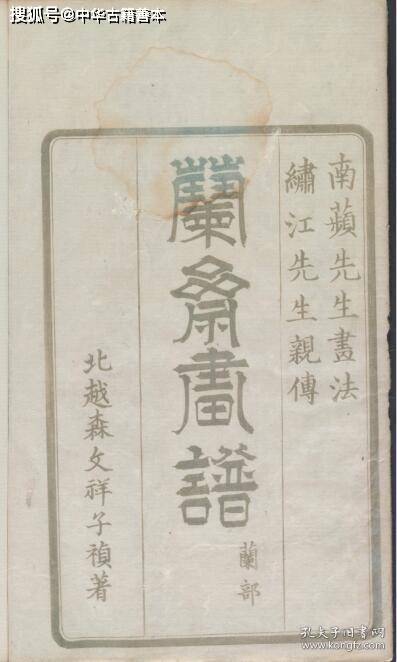 搜狐号@中华古籍善本
南蘋先生畫法
繡江先生親傳
蘭齋畫譜
蘭部
北越森文祥子禎著
孔夫子旧书网
www.kongfz.com